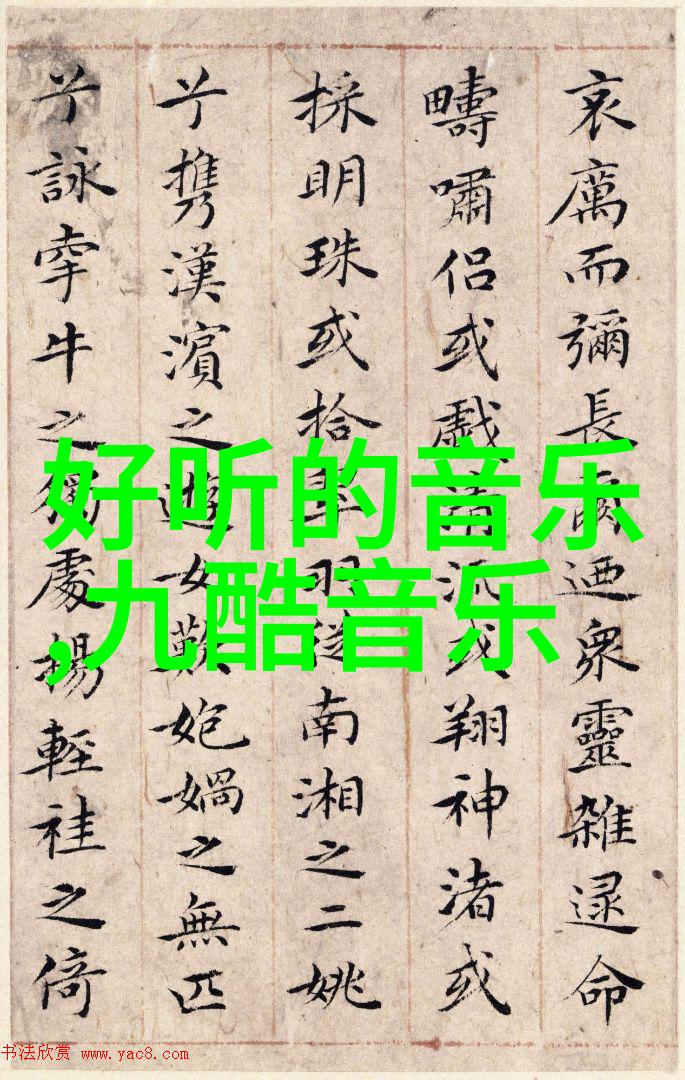 哀厲而彌長爾迺衆靈雜遝命
疇嘯侶或戲清流或翔神渚或
採明珠或拾翠羽從南湘之二姚
兮攜漢濱之遊女歎媧之無匹
兮詠牽牛之獨處揚輕袿之倚
好听的音乐
,九酷音乐
书法欣赏 www.yac8.com